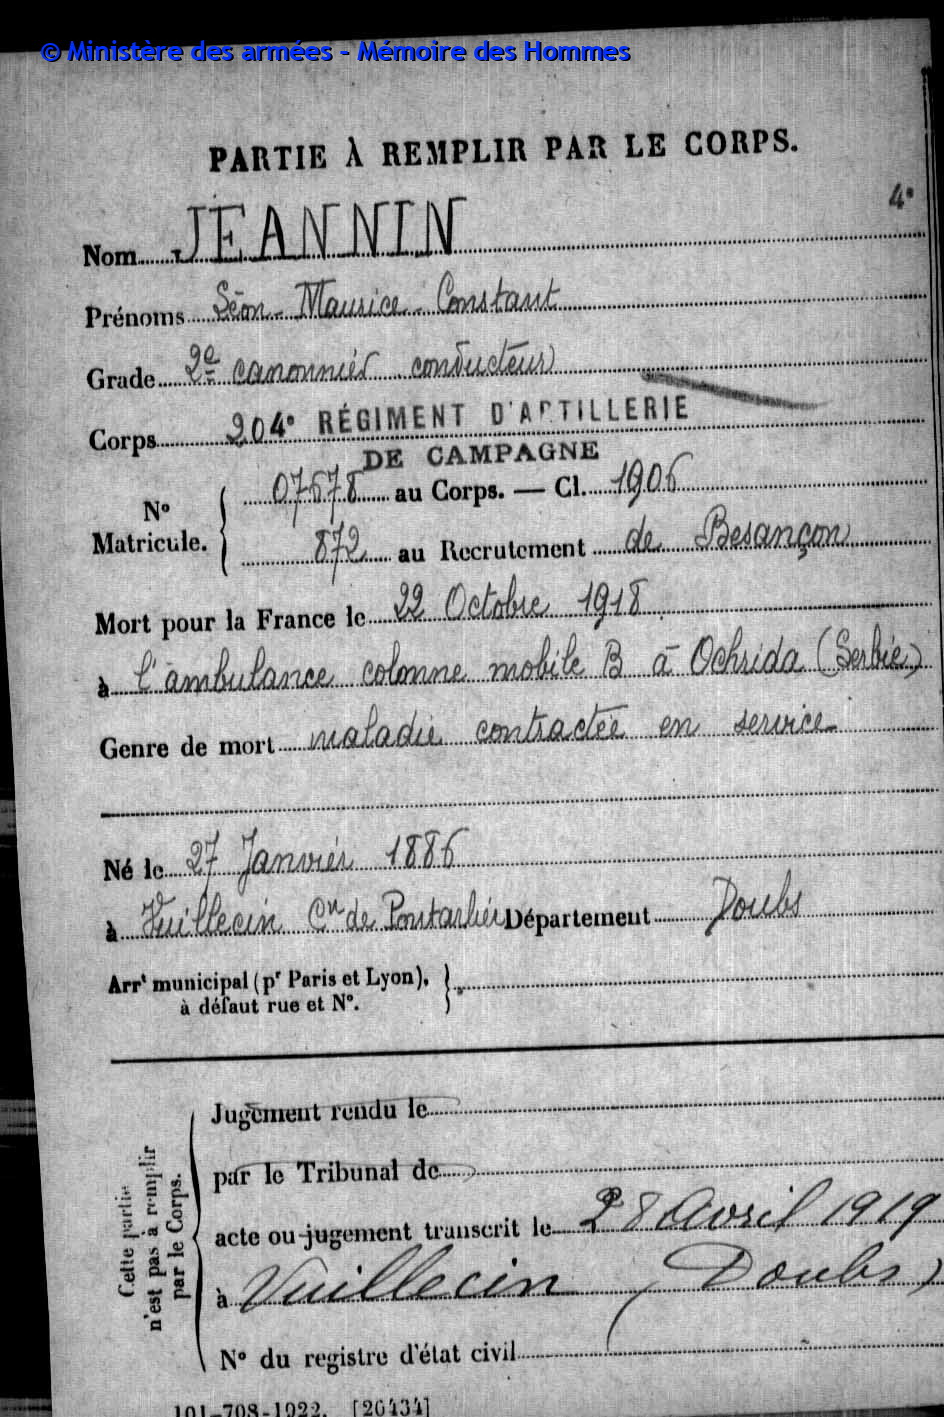 © Ministère des armées - Mémoire des Hommes
PARTIE À REMPLIR PAR LE CORPS.
4e
Nom JEANNIN
Prénoms Léon - Maurice - Constant
Grade 2e canonnier conducteur
Corps 204e RÉGIMENT D'ARTILLERIE
DE CAMPAGNE
No Matricule. 07678 au Corps. — Cl. 1906
872 au Recrutement de Besançon
Mort pour la France le 22 Octobre 1918
à l'ambulance colonne mobile B à Ochrida (Serbie)
Genre de mort maladie contractée en service
Né le 27 Janvier 1886
à Vuillecin Con de Pontarlier Département Doubs
Arrt municipal (pr Paris et Lyon),
à défaut rue et No.
Cette partie
n'est pas à remplir
par le Corps.
Jugement rendu le
par le Tribunal de
acte ou jugement transcrit le 28 Avril 1919
à Vuillecin (Doubs)
No du registre d'état civil
101-708-1922. [26434]